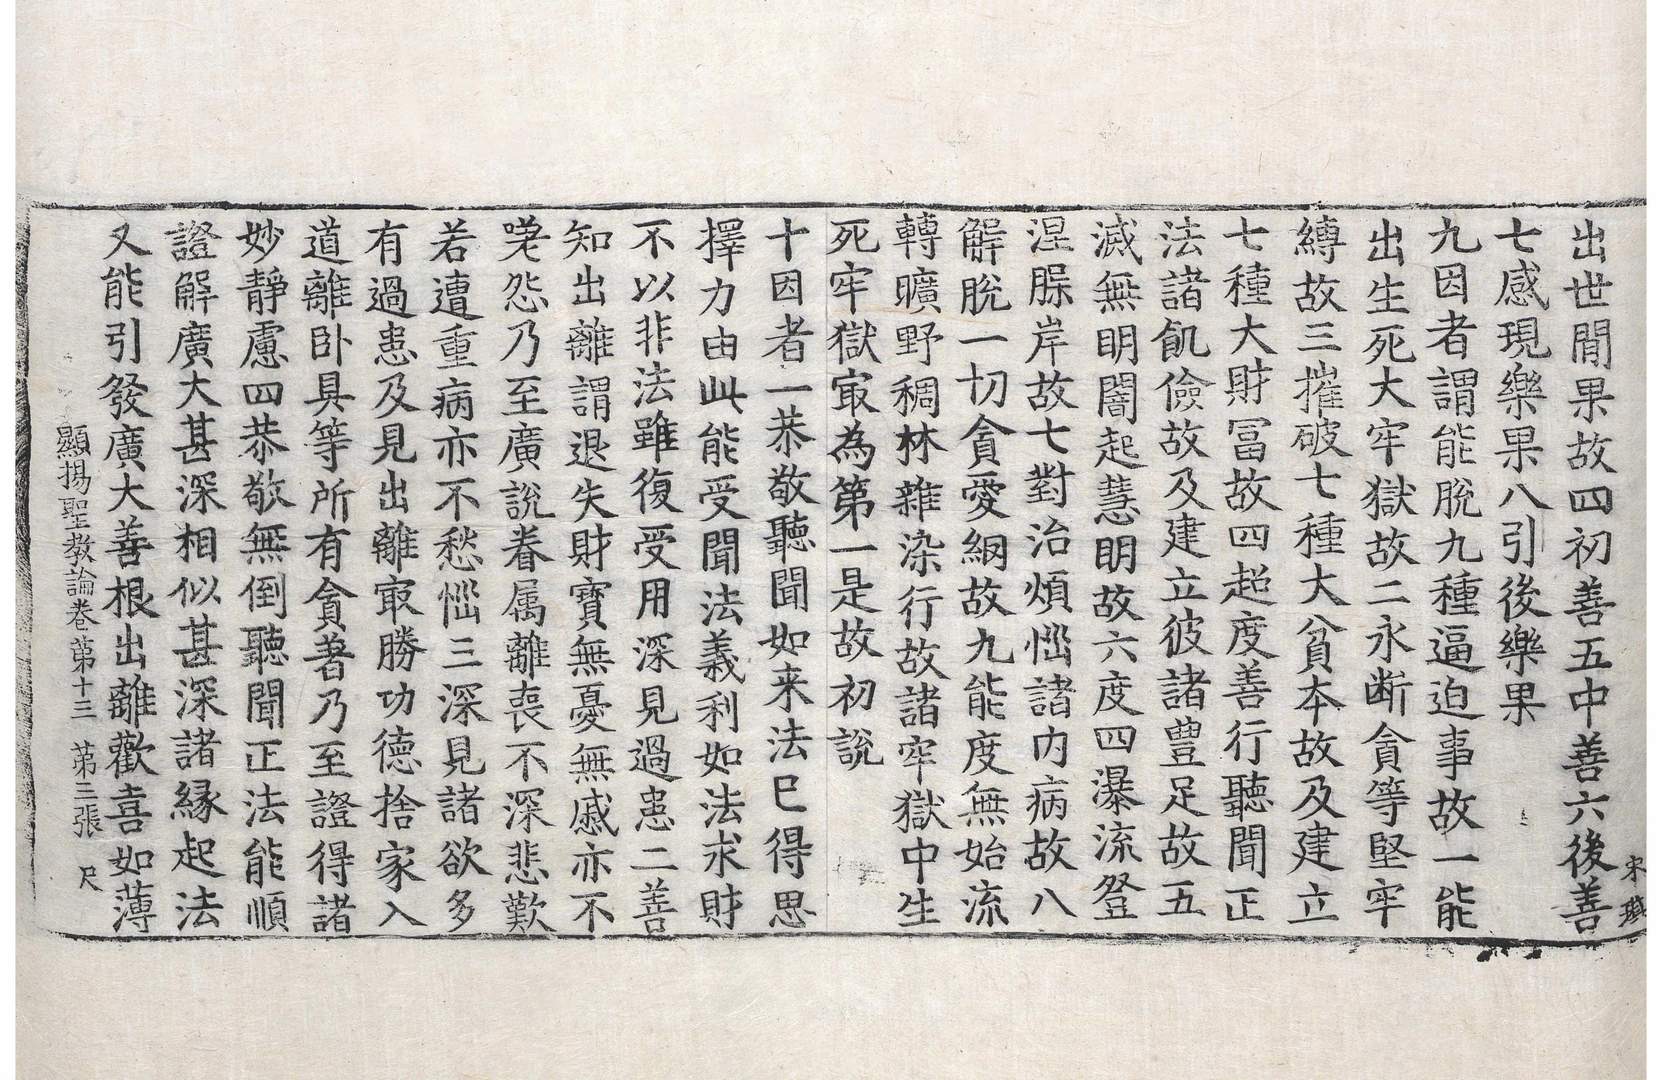 出世閒果故四初善五中善六後善
七感現樂果八引後樂果
九因者謂能脫九種逼迫事故一能
出生死大牢獄故二永断貪等堅牢
縛故三摧破七種大貧本故及建立
七種大財冨故四超度善行聽聞正
法諸飢儉故及建立彼諸豊足故五
滅無明闇起慧明故六度四瀑流登
涅槃岸故七對治煩惱諸内病故八
解脫一切貪愛網故九能度無始流
轉曠野稠林雜染行故諸牢獄中生
死牢獄冣為第一是故初說
十因者一恭敬聽聞如来法已得思
擇力由此能受聞法義利如法求財
不以非法雖復受用深見過患二善
知出離謂退失財寶無憂無慼亦不
嗟怨乃至廣說眷属離喪不深悲歎
若遭重病亦不愁惱三深見諸欲多
有過患及見出離冣勝功德捨家入
道離卧具等所有貪著乃至證得諸
妙靜慮四恭敬無倒聽聞正法能順
證解廣大甚深相似甚深諸縁起法
又能引發廣大善根出離歡喜如薄
顯揚聖教論卷第十三 第三張 尺